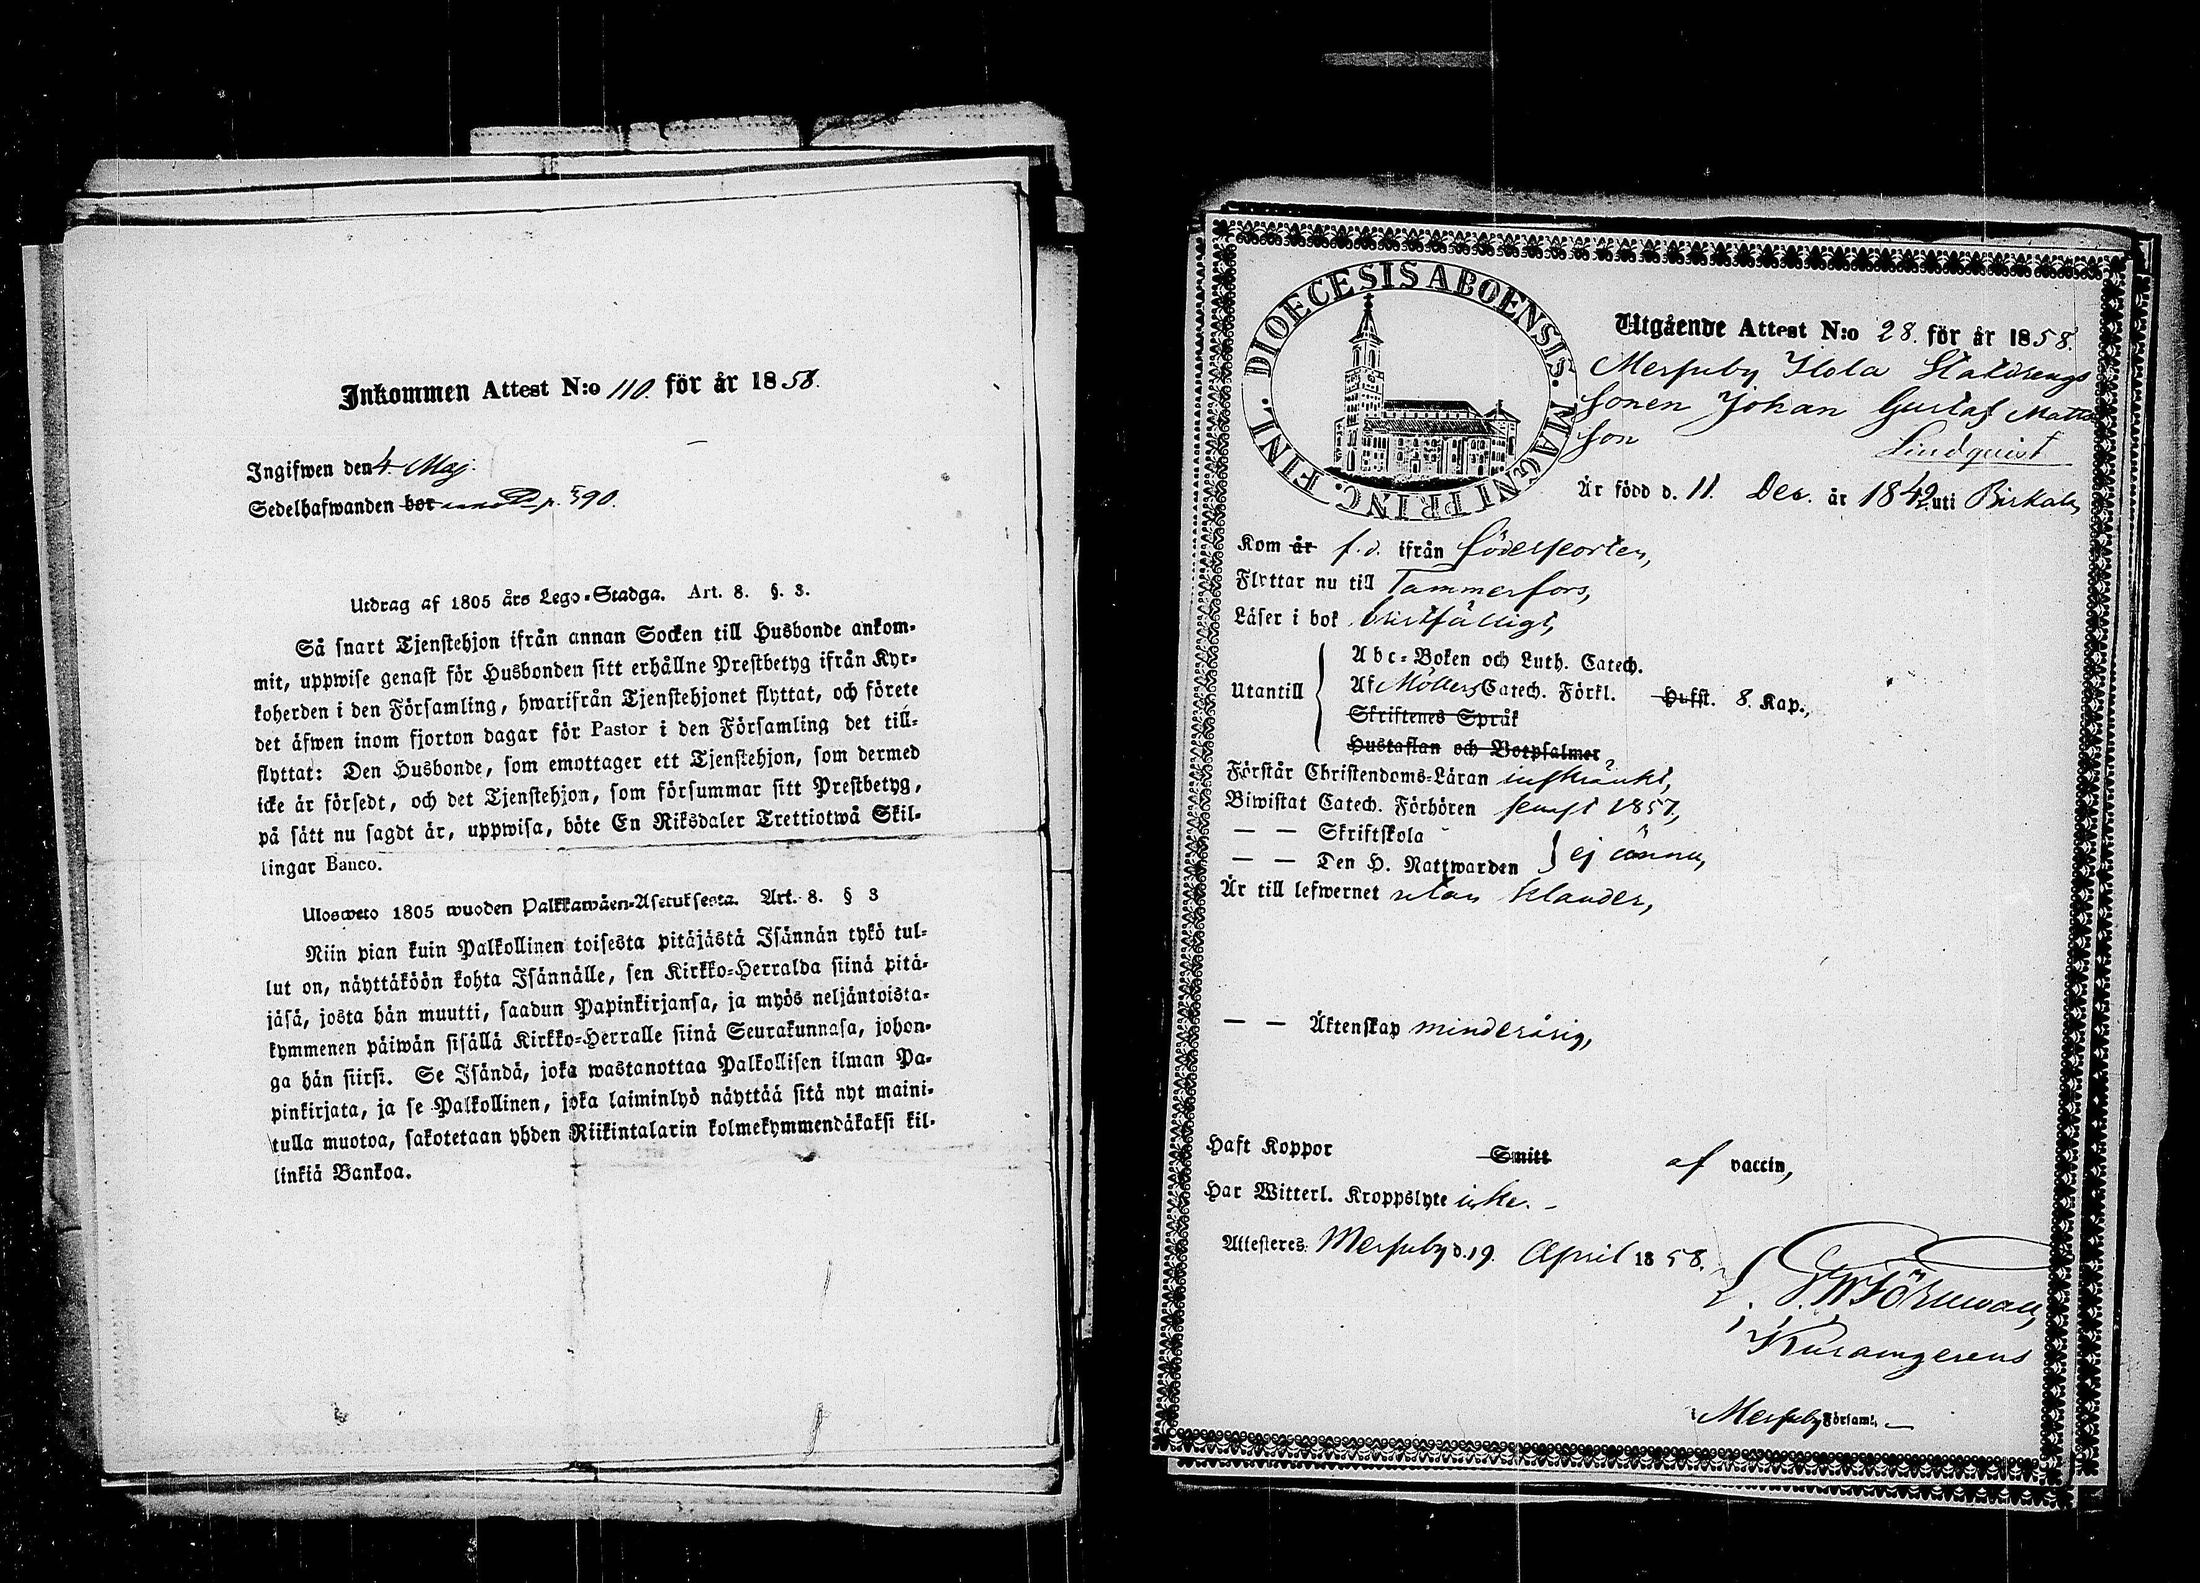 Inkommen Attest N:o 110. för år 1858.
Ingifwen den 4. Maj.
Sedelhafwanden bor p. 590.
Utdrag af 1805 års Lego-Stadga. Art. 8. §. 3.
Så snart Tjenstehjon ifrån annan Socken till Husbonde ankom-
mit, uppwise genast för Husbonden sitt erhållne Prestbetyg ifrån Kyr-
koherden i den Församling, hwarifrån Tjenstehjonet flyttat, och förete
det äfwen inom fjorton dagar för Pastor i den Församling det till-
flyttat: Den Husbonde, som emottager ett Tjenstehjon, som dermed
icke är försedt, och det Tjenstehjon, som försummar sitt Prestbetyg,
på sätt nu sagdt är, uppwisa, böte En Riksdaler Trettiotwå Skil-
lingar Banco.
Ulosweto 1805 wuoden Palkkawäen-Asetuksesta. Art. 8. § 3
Niin pian kuin Palkollinen toisesta pitäjästä Isännän tykö tul-
lut on, näyttäköön kohta Isännälle, sen Kirkko-Herralda siinä pitä-
jäsä, josta hän muutti, saadun Papinkirjansa, ja myös neljäntoista-
kymmenen päiwän sisällä Kirkko-Herralle siinä Seurakunnasa, johon-
ga hän siirsi. Se Isändä, joka wastanottaa Palkollisen ilman Pa-
pinkirjata, ja se Palkollinen, joka laiminlyö näyttää sitä nyt maini-
tulla muotoa, sakotetaan yhden Riikintalarin kolmekymmendäkaksi kil-
linkiä Bankoa.
DIOECESIS ABOENSIS. MAGNI PRINC. FINL.
Utgående Attest N:o 28. för år 1858.
Messuby Ilola Statdrengs
sonen Johan Gustaf Matts
son Lindquist
Är född d. 11. Dec. år 1842 uti Birkala,
Kom år f.d. ifrån födelseorten,
Flyttar nu till Tammerfors,
Läser i bok bristfälligt,
Utantill
Abc-Boken och Luth. Catech.
Af Möllers Catech. Förkl. Hufst. 8. Kap.,
Skriftenes Språk
Hustaflan och Botpsalmer
Förstår Christendoms-Läran inskränkt,
Biwistat Catech. Förhören senast 1857,
— — Skriftskola
— — Den H. Nattwarden } ej ännu,
Är till lefwernet utan klander,
— — Äktenskap minderårig,
Haft Koppor Smitt af vaccin,
Har Witterl. Kroppslyte icke. –
Attesteras Messuby d. 19. April 1858.
Kuraangerens
Messuby Församl. —